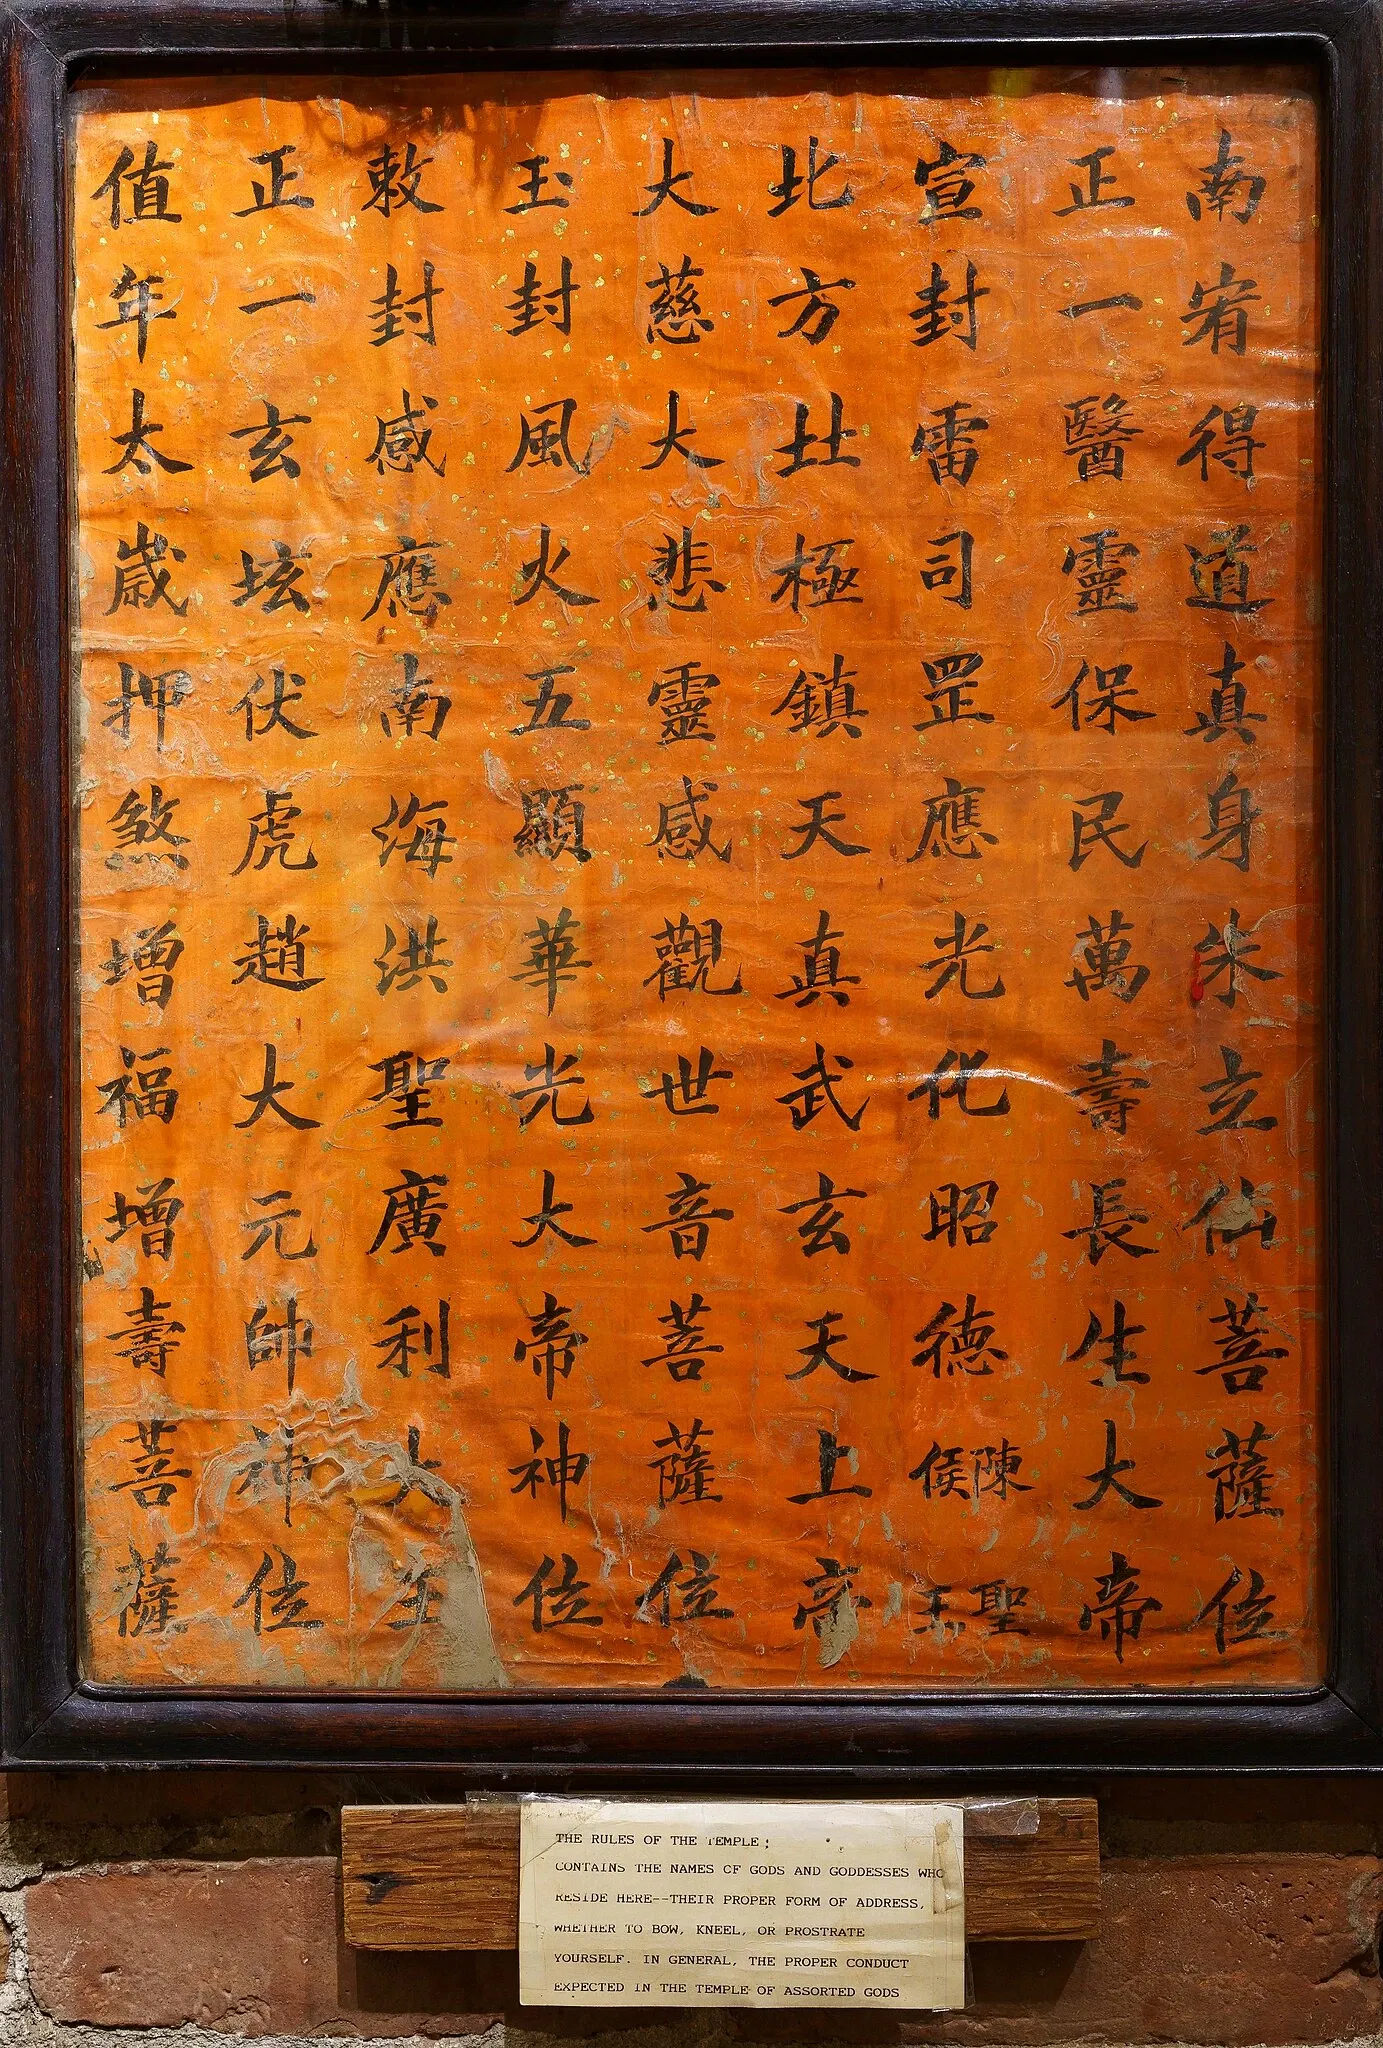 南宥得道真身朱立仙菩薩位
正一醫靈保民萬壽長生大帝
宣封雷司罡應光化昭德陳侯聖王
北方壯極鎮天真武玄天上帝
大慈大悲靈感觀世音菩薩位
玉封風火五顯華光大帝神位
敕封感應南海洪聖廣利大王
正一玄坛伏虎趙大元帥神位
值年太歲押煞增福增壽菩薩
THE RULES OF THE TEMPLE;
CONTAINS THE NAMES OF GODS AND GODDESSES WHO
RESIDE HERE--THEIR PROPER FORM OF ADDRESS,
WHETHER TO BOW, KNEEL, OR PROSTRATE
YOURSELF. IN GENERAL, THE PROPER CONDUCT
EXPECTED IN THE TEMPLE OF ASSORTED GODS